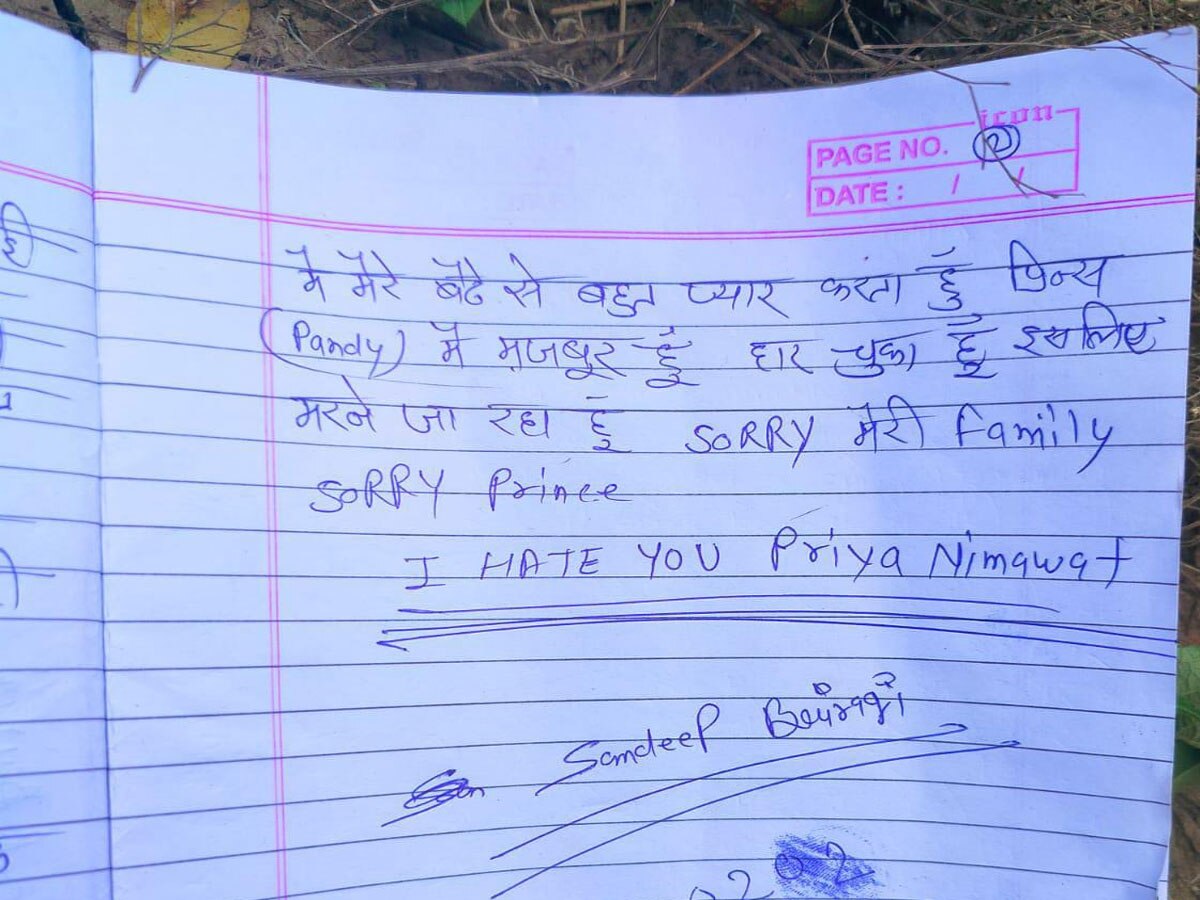 icon
PAGE NO. 2
DATE : / /
मै मेरे बेटे से बहुत प्यार करता हूँ प्रिन्स
(Pandy) मै मजबूर हूँ हार चुका हूँ इसलिए
मरने जा रहा हूँ SORRY मेरी Family
SORRY Prince
I HATE YOU Priya Nimawat
Sandeep Bairagi